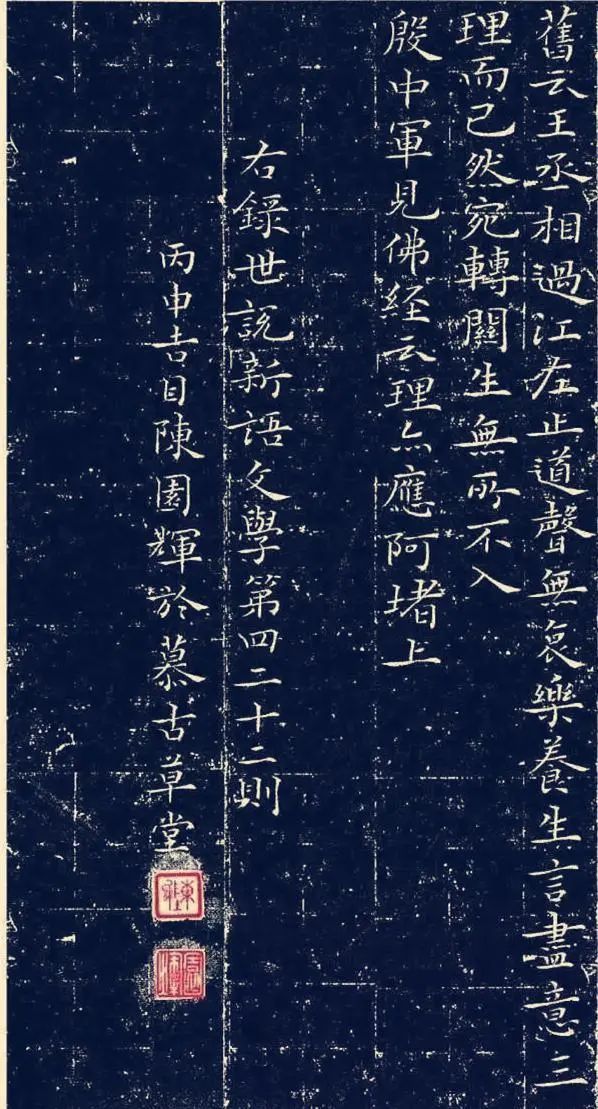 舊云王丞相過江左止道聲無哀樂養生言盡意三
理而已然宛轉關生無所不入
殷中軍見佛經云理亦應阿堵上
右錄世說新語文學第四二十二則
丙申吉日陳園輝於慕古草堂